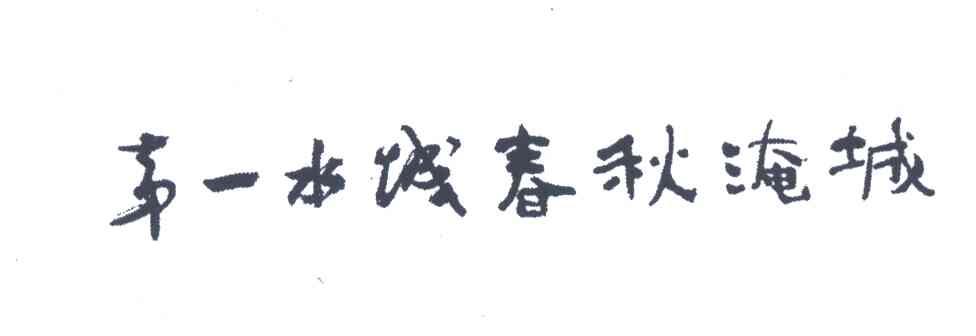 第一水城春秋淹城